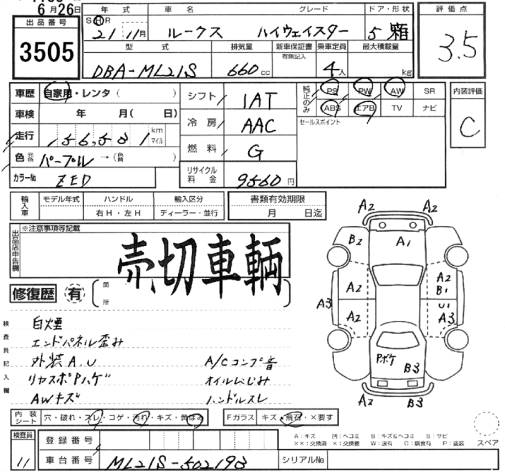 6月26日
出品番号
3505
年式 車名 グレード ドア・形状
S H R 21年 11月 ルークス ハイウェイスター 5 箱
型式 排気量 新車保証書 有無記入 乗車定員 最大積載量
DBA-ML21S 660cc 4人 kg
評価点
3.5
車歴 自家用・レンタ( )
車検 年 月( 日)
走行 km マイル
色 パープル →( )
カラーNo ZED
シフト IAT
冷房 AAC
燃料 G
リサイクル料金 9560円
純正のみ PS PW AW SR
ABS エアB TV ナビ
セールスポイント
内装評価
C
輸入車 モデル年式 ハンドル 輸入区分
右H・左H ディーラー・並行
書類有効期限
月 日迄
※注意事項等記載
売切車輌
修復歴 有 箇所
検査員記入欄
白煙
エンドパネル歪み
外装A,U
A/Cコンプ音
リヤスポPハゲ
オイルにじみ
AWキズ
ハンドルスレ
A2 A2
B2 A1 A2
A3 A2 A2 B1 U1 A3
Pハゲ B3
A2 B3
内装シート 穴・破れ・スレ・コゲ・汚れ・キズ・黄ばみ
Fガラス キズ・無傷・×要す
スペア
A:キズ
検査員 11
登録番号
車台番号 ML21S-502198
シリアルNo